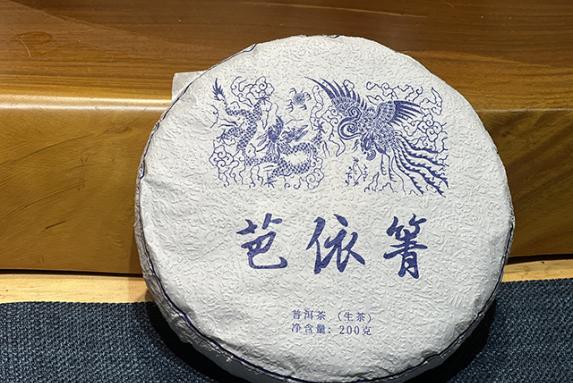 芭依箐
普洱茶（生茶）
净含量：200克